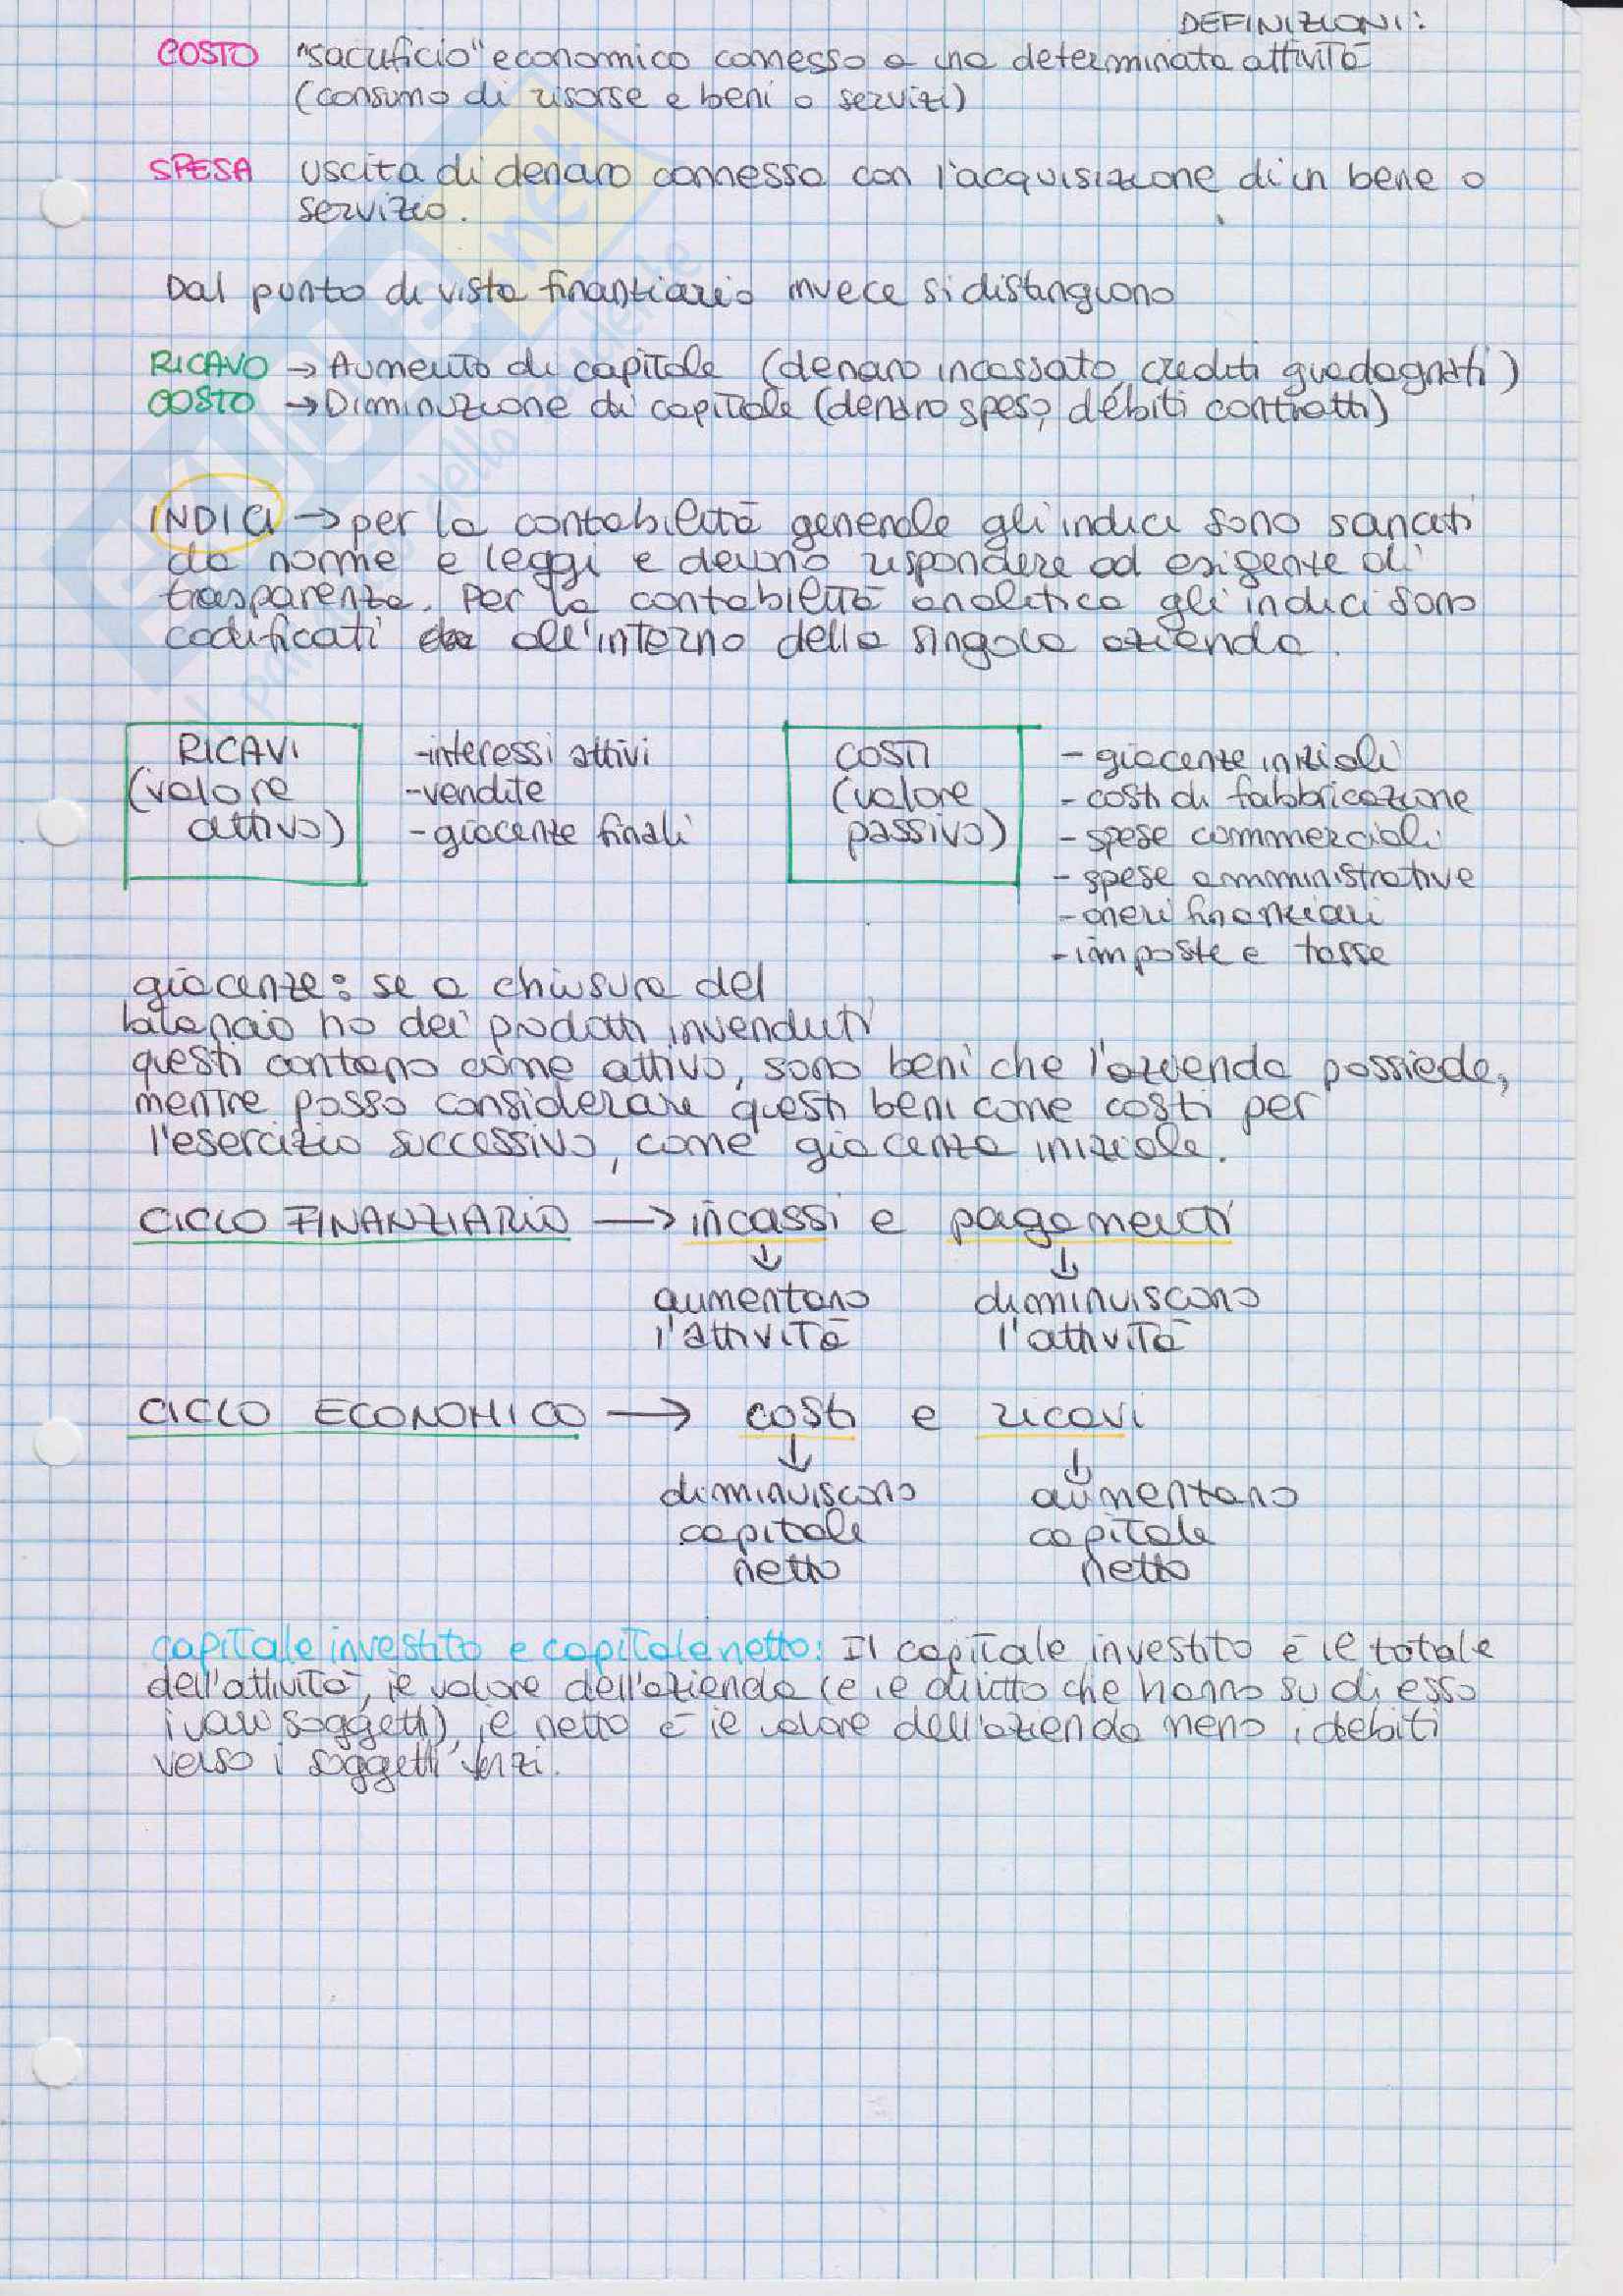 DEFINIZIONI:
COSTO "sacrificio" economico connesso a una determinata attività
(consumo di risorse e beni o servizi)
SPESA uscita di denaro connessa con l'acquisizione di un bene o
servizio.
Dal punto di vista finanziario invece si distinguono
RICAVO → Aumento di capitale (denaro incassato, crediti guadagnati)
COSTO → Diminuzione di capitale (denaro speso, debiti contratti)
INDICI → per la contabilità generale gli indici sono sanciti
da norme e leggi e devono rispondere ad esigenze di
trasparenza. Per la contabilità analitica gli indici sono
codificati all'interno della singola azienda.
RICAVI -interessi attivi COSTI - giacenze iniziali
(valore -vendite (valore - costi di fabbricazione
attivo) -giacenze finali passivo) - spese commerciali
- spese amministrative
- oneri finanziari
- imposte e tasse
giacenze: se a chiusura del
bilancio ho dei prodotti invenduti
questi contano come attivo, sono beni che l'azienda possiede,
mentre posso considerare questi beni come costi per
l'esercizio successivo, come giacenza iniziale.
CICLO FINANZIARIO → incassi e pagamenti
↓ ↓
aumentano diminuiscono
l'attività l'attività
CICLO ECONOMICO → costi e ricavi
↓ ↓
diminuiscono aumentano
capitale capitale
netto netto
capitale investito e capitale netto: Il capitale investito è il totale
dell'attività, il valore dell'azienda (e il diritto che hanno su di esso
i vari soggetti), il netto è il valore dell'azienda meno i debiti
verso i soggetti terzi.